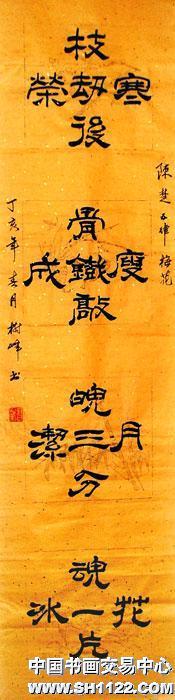 陳楚
梅花
寒枝劫後榮
瘦骨鐵敲成
月魄三分潔
花魂一片冰
丁亥年春月樹峰书
中国书画交易中心
WWW.SH1122.COM